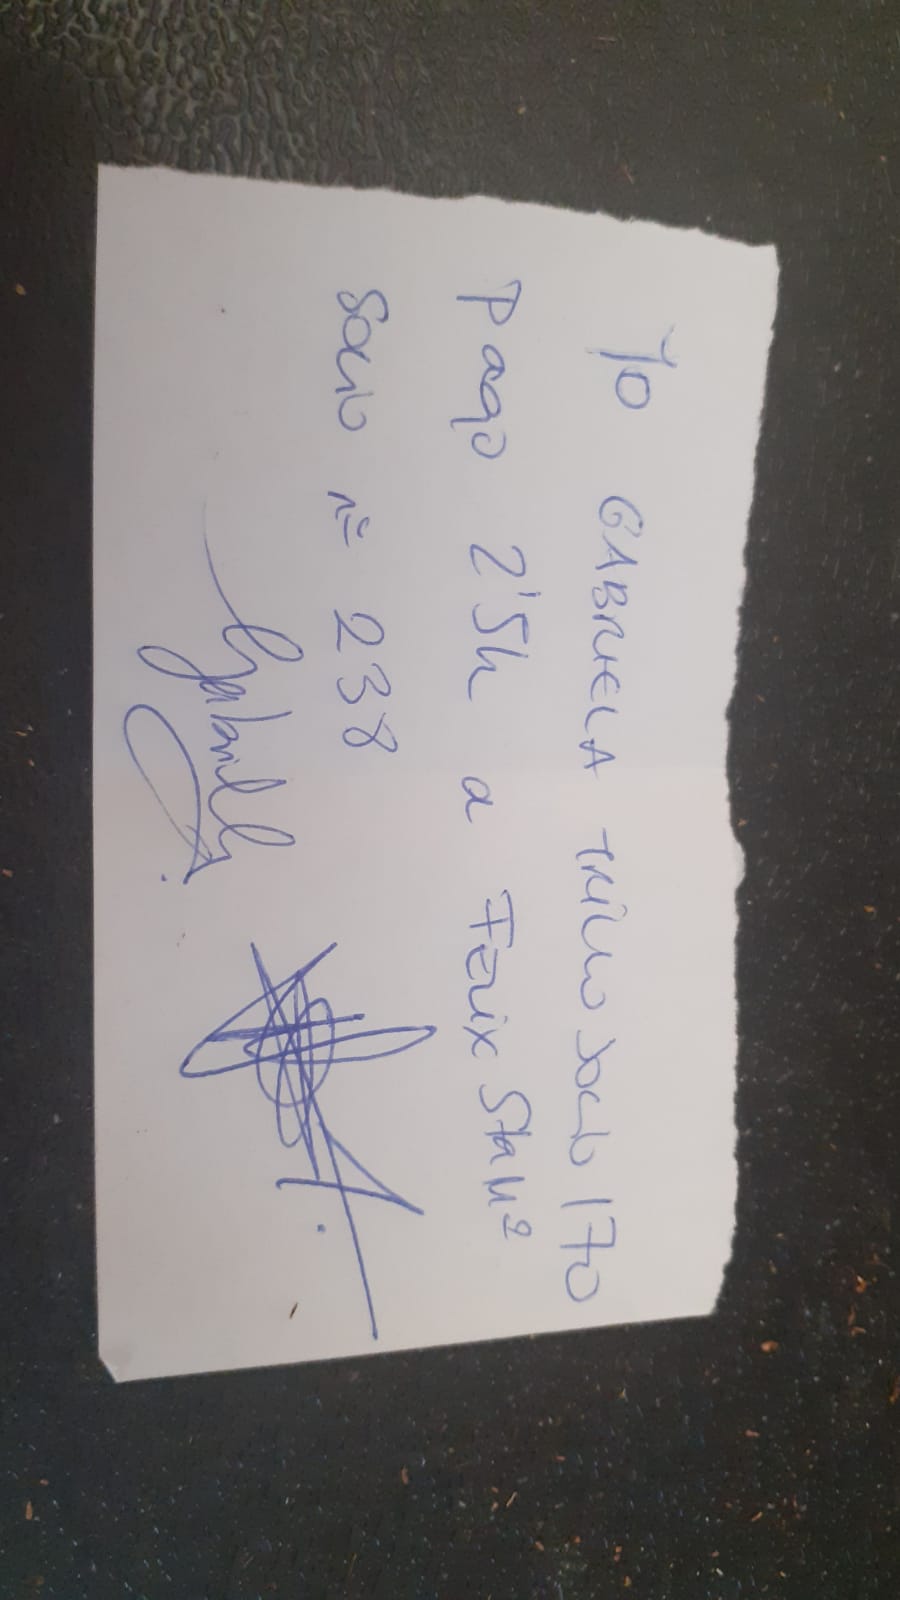 Yo GABRIELA TRILLO Socio 170
Pago 2'5h a Fenix Sta Mª
Socio nº 238
Gabriela